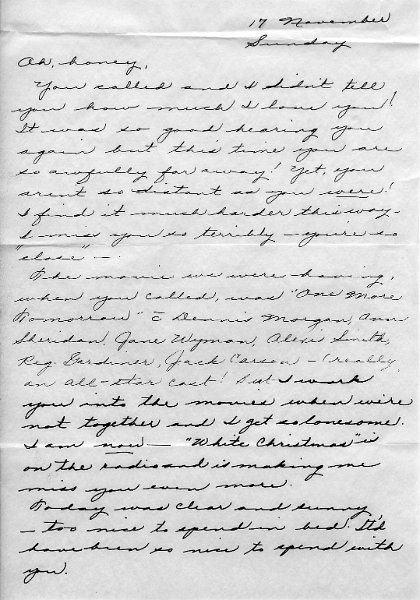 17 November
Sunday
Oh, honey,
You called and I didn't tell
you how much I love you!
It was so good hearing you
again but this time you are
so awfully far away! Yet, you
aren't so distant as you were!
I find it much harder this way -
I miss you so terribly - you're so
"close" -.
The movie we were having,
when you called, was "One More
Tomorrow" c̄ Dennis Morgan, Ann
Sheridan, Jane Wyman, Alexis Smith,
Reg Gardiner, Jack Carson - (really
an all-star cast! But I work
you into the movies when we're
not together and I get so lonesome.
I am now - "White Christmas" is
on the radio and is making me
miss you even more.
Today was clear and sunny
- too nice to spend in bed. It'd
have been so nice to spend with
you.